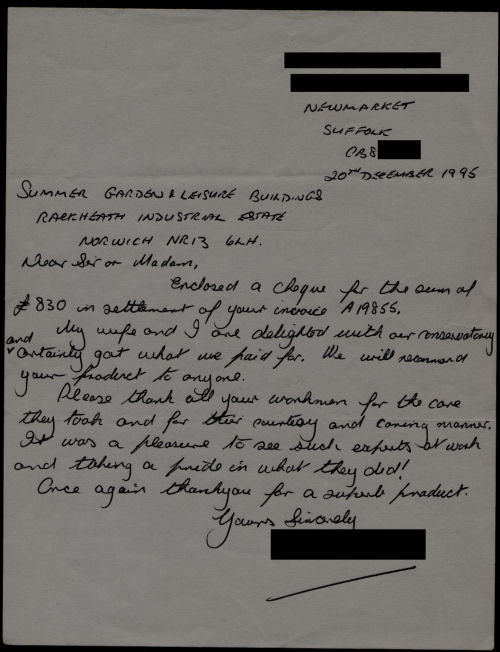 NEWMARKET
SUFFOLK
CB8
20TH DECEMBER 1995
SUMMER GARDEN & LEISURE BUILDINGS
RACKHEATH INDUSTRIAL ESTATE
NORWICH NR13 6LH.
Dear Sir or Madam,
Enclosed a cheque for the sum of
£830 in settlement of your invoice A19855.
My wife and I are delighted with our conservatory
and certainly got what we paid for. We will recommend
your product to anyone.
Please thank all your workmen for the care
they took and for their courtesy and caring manner.
It was a pleasure to see such experts at work
and taking a pride in what they did!
Once again thankyou for a superb product.
Yours Sincerely